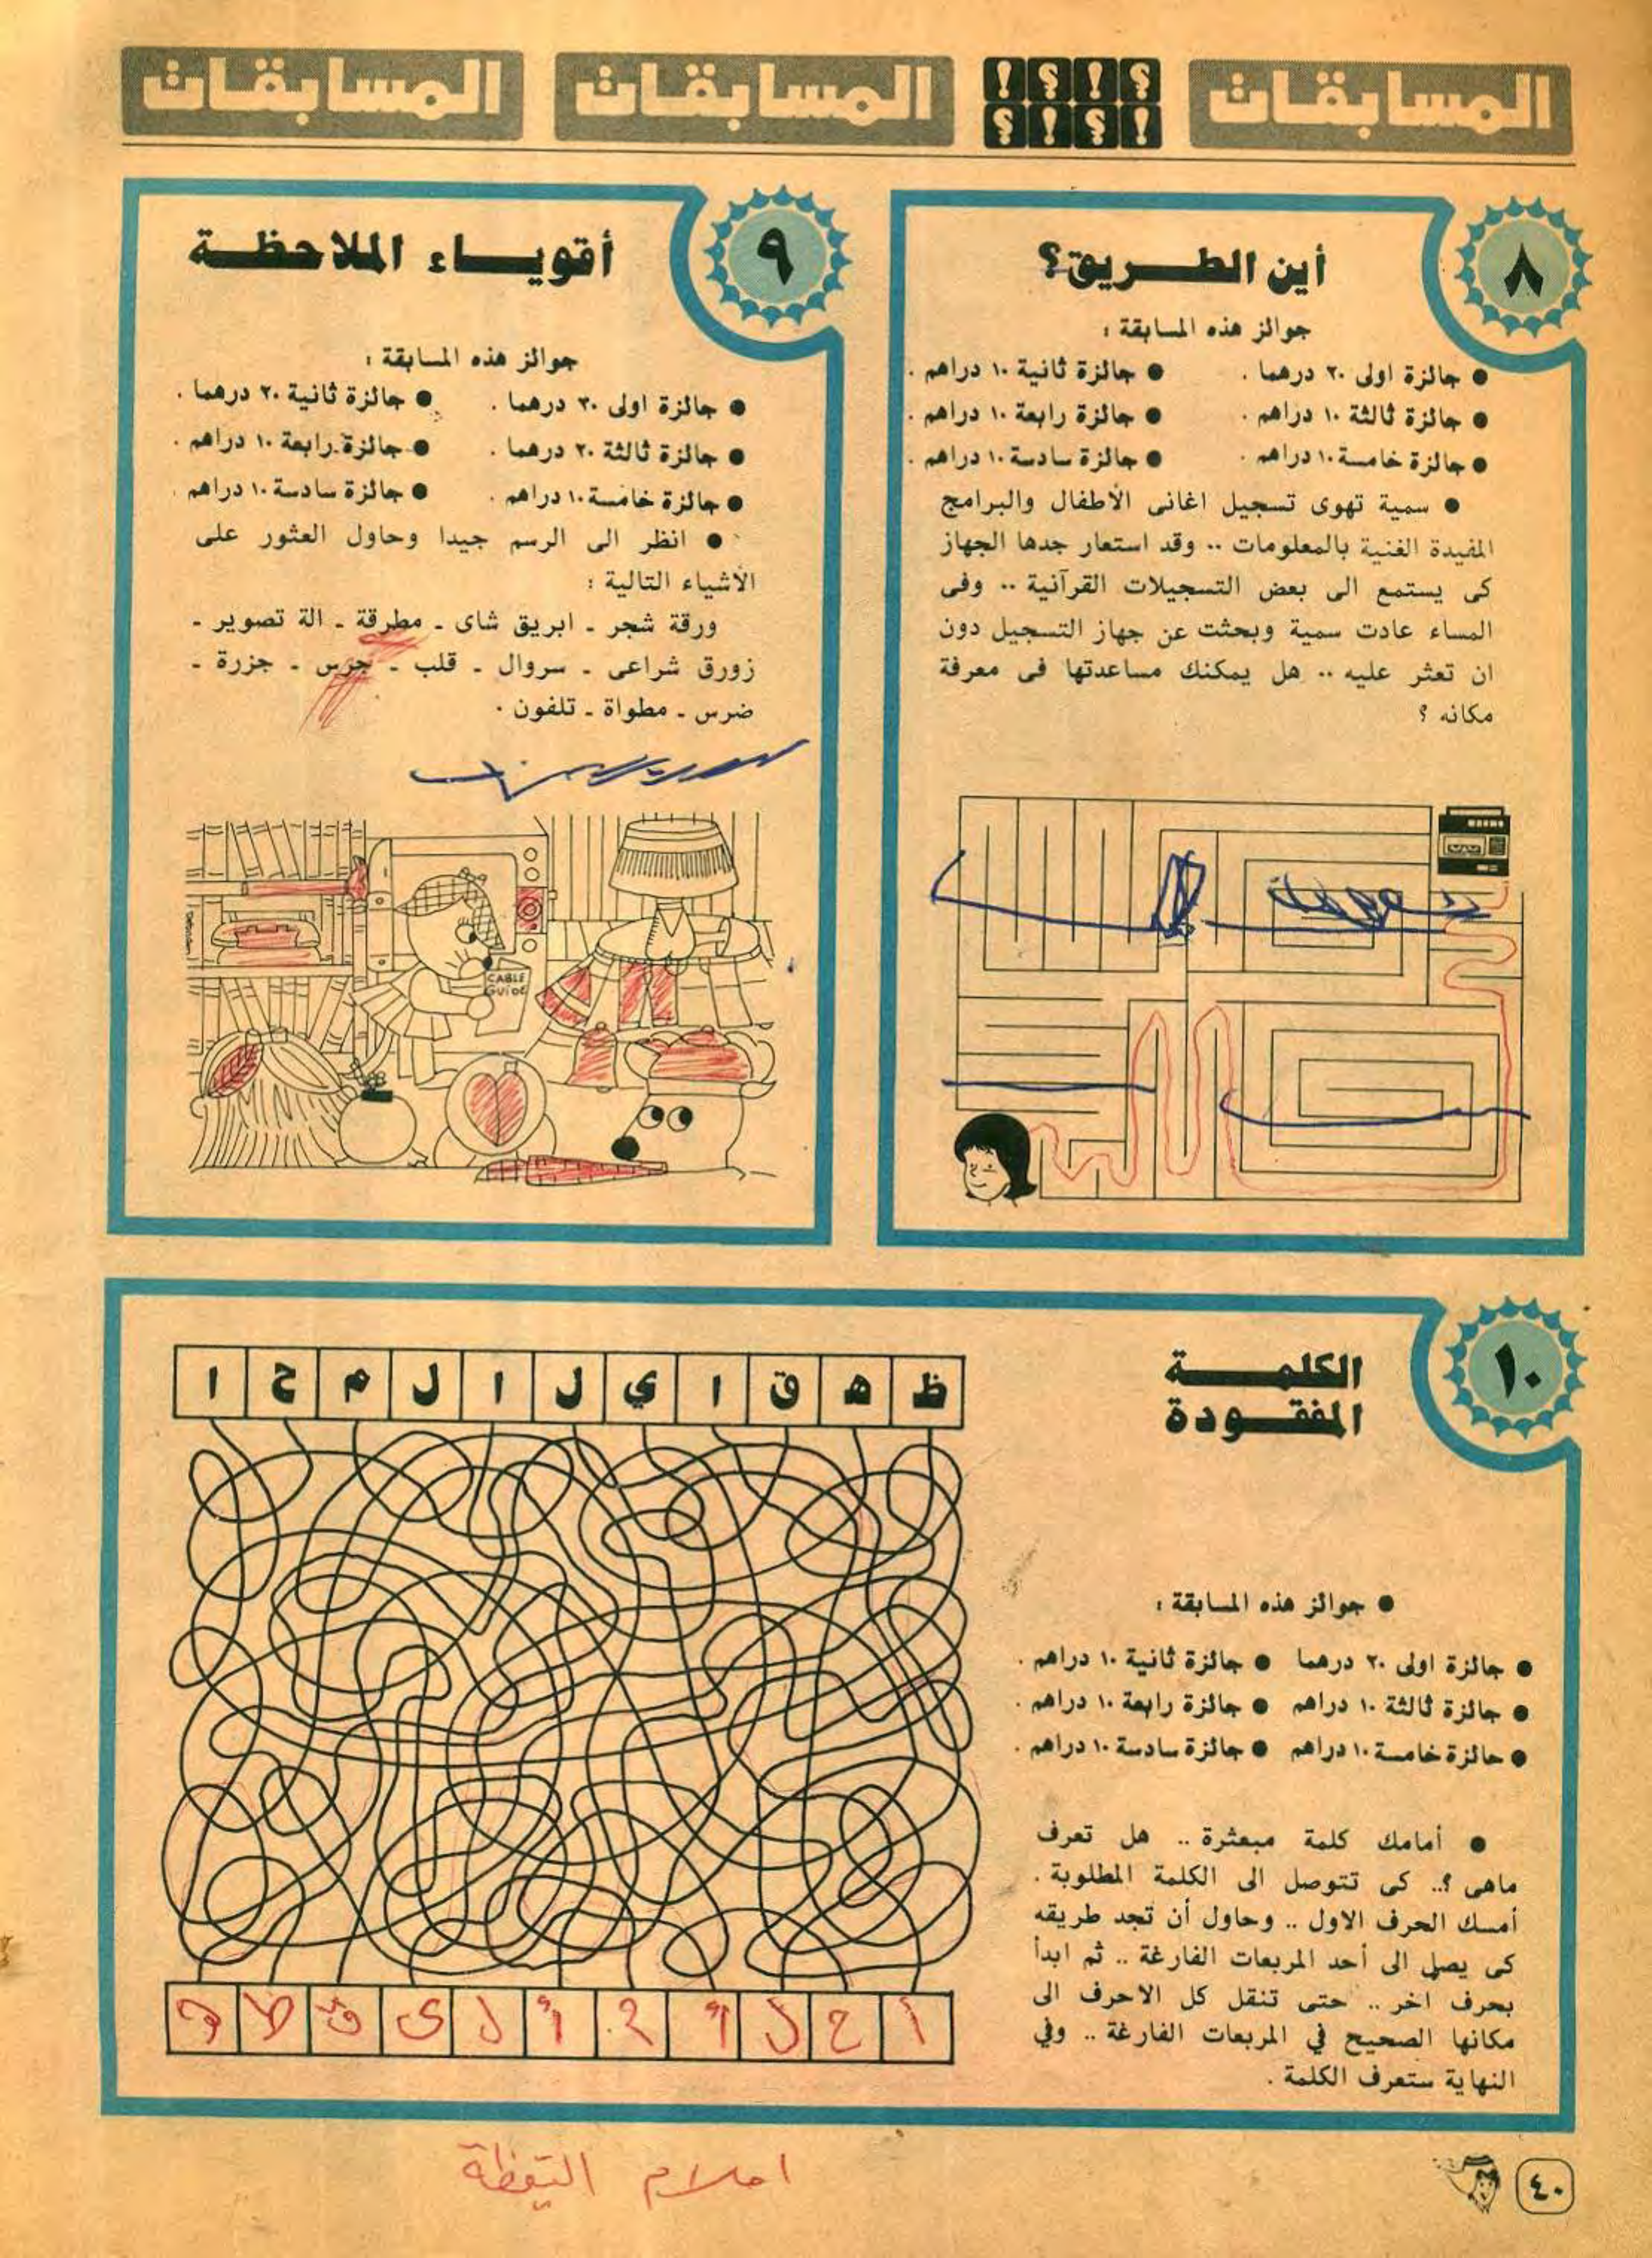 المسابقات
المسابقات
المسابقات
؟!؟!
!؟!؟
٨
أين الطريق؟
جوائز هذه المسابقة :
● جائزة اولى ٢٠ درهما . ● جائزة ثانية ١٠ دراهم .
● جائزة ثالثة ١٠ دراهم . ● جائزة رابعة ١٠ دراهم .
● جائزة خامسة ١٠ دراهم . ● جائزة سادسة ١٠ دراهم .
● سمية تهوى تسجيل اغانى الأطفال والبرامج
المفيدة الغنية بالمعلومات .. وقد استعار جدها الجهاز
كى يستمع الى بعض التسجيلات القرآنية .. وفى
المساء عادت سمية وبحثت عن جهاز التسجيل دون
ان تعثر عليه .. هل يمكنك مساعدتها فى معرفة
مكانه ؟
٩
أقوياء الملاحظة
جوائز هذه المسابقة :
● جائزة اولى ٣٠ درهما . ● جائزة ثانية ٢٠ درهما .
● جائزة ثالثة ٢٠ درهما . ● جائزة رابعة ١٠ دراهم .
● جائزة خامسة ١٠ دراهم . ● جائزة سادسة ١٠ دراهم .
● انظر الى الرسم جيدا وحاول العثور على
الأشياء التالية :
ورقة شجر ـ ابريق شاى ـ مطرقة ـ الة تصوير ـ
زورق شراعى ـ سروال ـ قلب ـ جرس ـ جزرة ـ
ضرس ـ مطواة ـ تلفون .
CABLE
GUIDE
١٠
الكلمة
المفقودة
● جوائز هذه المسابقة :
● جائزة اولى ٢٠ درهما ● جائزة ثانية ١٠ دراهم .
● جائزة ثالثة ١٠ دراهم ● جائزة رابعة ١٠ دراهم .
● جائزة خامسة ١٠ دراهم ● جائزة سادسة ١٠ دراهم .
● أمامك كلمة مبعثرة .. هل تعرف
ماهى ؟.. كى تتوصل الى الكلمة المطلوبة .
أمسك الحرف الاول .. وحاول أن تجد طريقه
كى يصل الى أحد المربعات الفارغة .. ثم ابدأ
بحرف اخر .. حتى تنقل كل الاحرف الى
مكانها الصحيح في المربعات الفارغة .. وفي
النهاية ستعرف الكلمة .
ظ ه ق ا ي ل ا ل م ح ا
أ ح ل أ م أ ل ى ق ظ ة
احلام اليقظة
٤٠